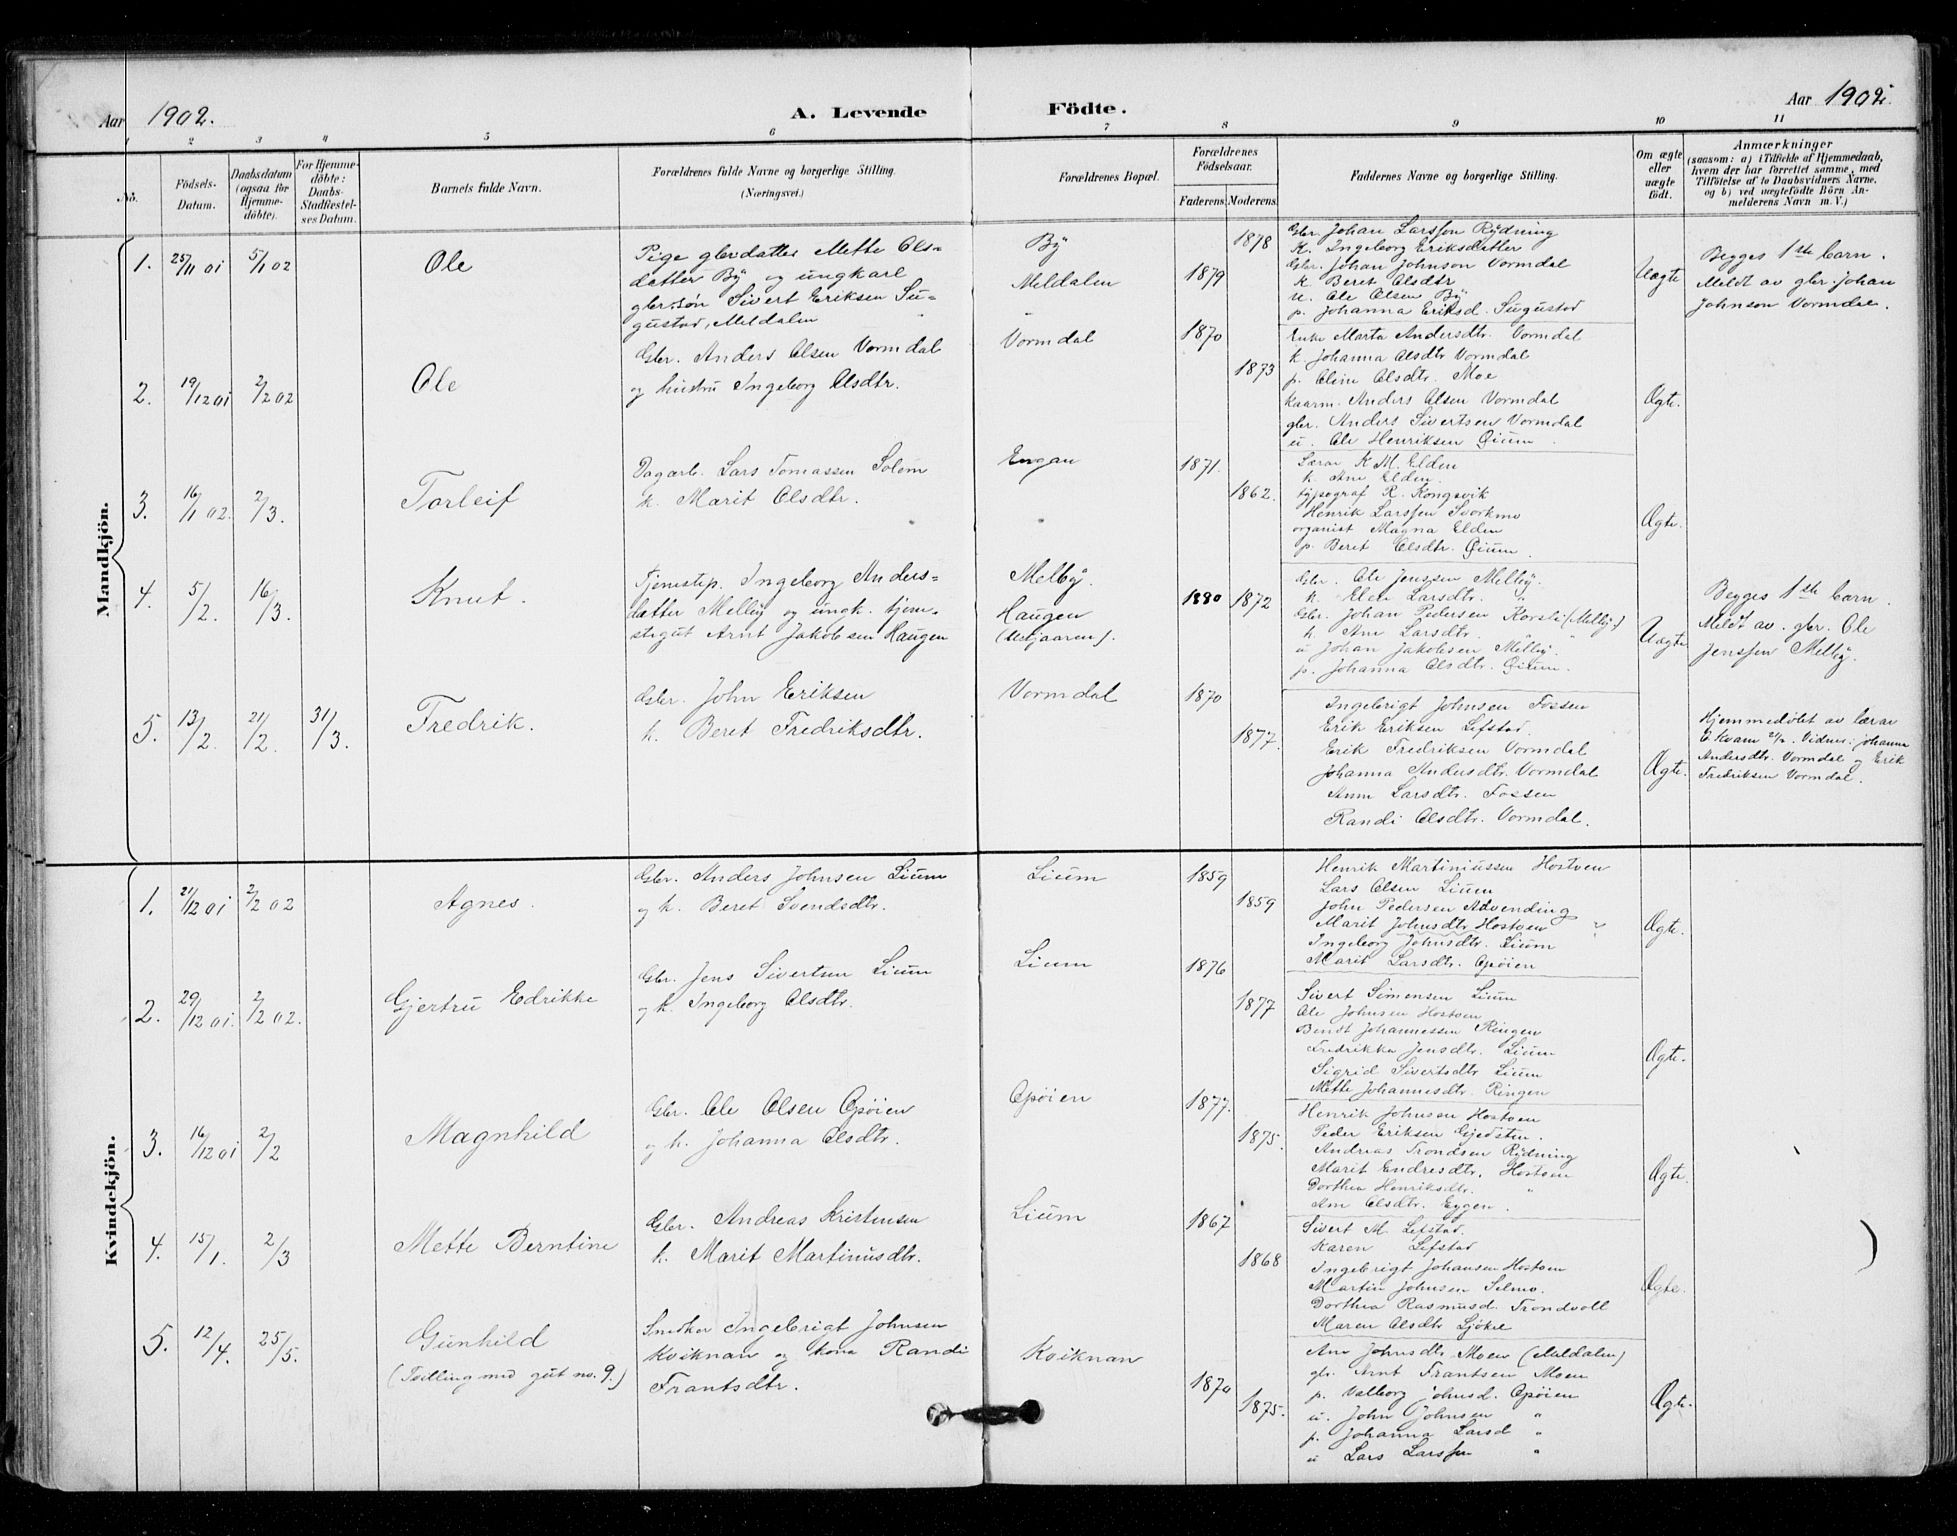 Aar 1902.
A. Levende Födte.
Aar 1902.
1 2 3 4 5 6 7 8 9 10 11
No.
Födsels-
Datum.
Daabsdatum
(ogsaa for
Hjemme-
döbte).
For Hjemme-
döbte:
Daabs-
Stadfæstel-
ses Datum.
Barnets fulde Navn.
Forældrenes fulde Navne og borgerlige Stilling.
(Næringsvei.)
Forældrenes Bopæl.
Forældrenes
Födselsaar.
Faderens. Moderens.
Faddernes Navne og borgerlige Stilling.
Om ægte
eller
uægte
födt.
Anmærkninger
(saasom: a) i Tilfælde af Hjemmedaab,
hvem der har forrettet samme, med
Tilföielse af to Daabsvidners Navne.
og b) ved uægtefödte Börn An-
melderens Navn m. V.)
Mandkjön.
1. 25/11 01 5/1 02
Ole
Pige gbrdatter Mette Ols-
datter Bÿ og ungkarl
gbrsøn Sivert Eriksen Su-
gustad, Meldalen
Bÿ
Meldalen
1879 1878
Gbr. Johan Larssen Rÿdning
K. Ingeborg Eriksdatter
Gbr. Johan Johnson Vormdal
k. Beret Olsdtr
u. Ole Olsen Bÿ
p. Johanna Eriksd. Sugustad
Uægte
Begges 1ste barn.
Meldt av gbr. Johan
Johnson Vormdal.
2. 19/12 01 2/2 02
Ole
Gbr. Anders Olsen Vormdal
og hustru Ingeborg Olsdtr.
Vormdal
1870 1873
Enke Marta Andersdtr. Vormdal
k. Johanna Olsdtr Vormdal
p. Oline Olsdtr. Moe
Kaarm. Anders Olsen Vormdal
gbr. Anders Sivertsen Vormdal
u. Ole Henriksen Øium.
Ægte.
3. 16/1 02. 2/3.
Torleif
Dagarb. Lars Tomassen Solem
k. Marit Olsdtr.
Engan
1871. 1862.
Lærar K. M. Elden
k. Ane Elden.
typograf R. Kongsvik
Henrik Larssen Svorkmo
organist Magna Elden
p. Beret Olsdtr. Øium.
Ægte.
4. 5/2. 16/3.
Knut.
Tjenestep. Ingeborg Anders-
datter Melby og ungk. tjene-
stegut Arnt Jakobsen Haugen
Melbÿ.
Haugen
1880 1872
Gbr. Ole Jenssen Melbÿ.
k. Elen Larsdtr. "
Gbr. Johan Pedersen Korsli (Melbÿ)
k. Ane Larsdtr. "
u. Johan Jakobsen Melbÿ.
p. Johanna Olsdtr. Øium.
Uægte
Begges 1ste barn.
Meldt av. gbr. Ole
Jenssen Melbÿ.
5. 13/2. 21/2. 31/3.
Fredrik.
Gbr. John Eriksen
k. Beret Fredriksdtr.
Vormdal
1870 1877.
Ingebrigt Johnsen Fossen
Erik Eriksen Lefstad.
Erik Fredriksen Vormdal
Johanna Andersdtr. Vormdal
Ane Larsdtr. Fossen
Randi Olsdtr. Vormdal.
Ægte.
Hjemmedøbt av lærar
E. Kvam 21/2. Vidner: Johanna
Andersdtr. Vormdal og Erik
Fredriksen Vormdal.
Kvindekjön.
1. 21/12 01 2/2 02
Agnes.
Gbr. Anders Johnsen Lium
og k. Beret Svendsdtr.
Lium
1859 1859
Henrik Martiniussen Hostven
Lars Olsen Lium
John Pedersen Aavending
Marit Johnsdtr Hostven
Ingeborg Johnsdtr. Lium
Marit Larsdtr. Opøien
Ægte.
2. 29/12 01. 2/2 02.
Gjertru Edrikke
Gbr. Jens Sivertsen Lium
og k. Ingeborg Olsdtr.
Lium
1876 1877
Sivert Simensen Lium
Ole Johnsen Hostven
Bendt Johannessen Ringen
Fredrikka Jensdtr. Lium
Sigrid Sivertsdtr Lium
Mette Johannesdtr. Ringen
Ægte.
3. 16/12 01 2/2
Magnhild
Gbr. Ole Olsen Opøien
og k. Johanna Olsdtr.
Opøien
1877. 1875.
Henrik Johnsen Hostven
Peder Eriksen Gjedsten.
Andreas Trondsen Rÿdning
Marit Endresdtr. Hostven
Dorthea Henriksdtr. "
Ane Olsdtr. Eggen.
Ægte.
4. 15/1. 2/3
Mette Berntine
Gbr. Andreas Kristensen
k. Marit Martinusdtr.
Lium
1867 1868
Sivert M. Lefstad.
Karen Lefstad
Ingebrigt Johansen Hostven
Martin Johnsen Selmo.
Dorthea Rasmusd. Trondvoll
Maren Olsdtr Ljøkel
Ægte.
5. 12/4. 25/5.
Gunhild
(Tvilling med gut no. 9.)
Snedker Ingebrigt Johnsen
Kviknan og kona Randi
Frantsdtr.
Kviknan
1870 1875.
Ane Johnsdtr Moen (Meldalen)
gbr. Arnt Frantsen Moen
p. Valborg Johnsd. Opøien
u. John Johnsen "
p. Johanna Larsd "
u Lars Larssen "
Ægte.